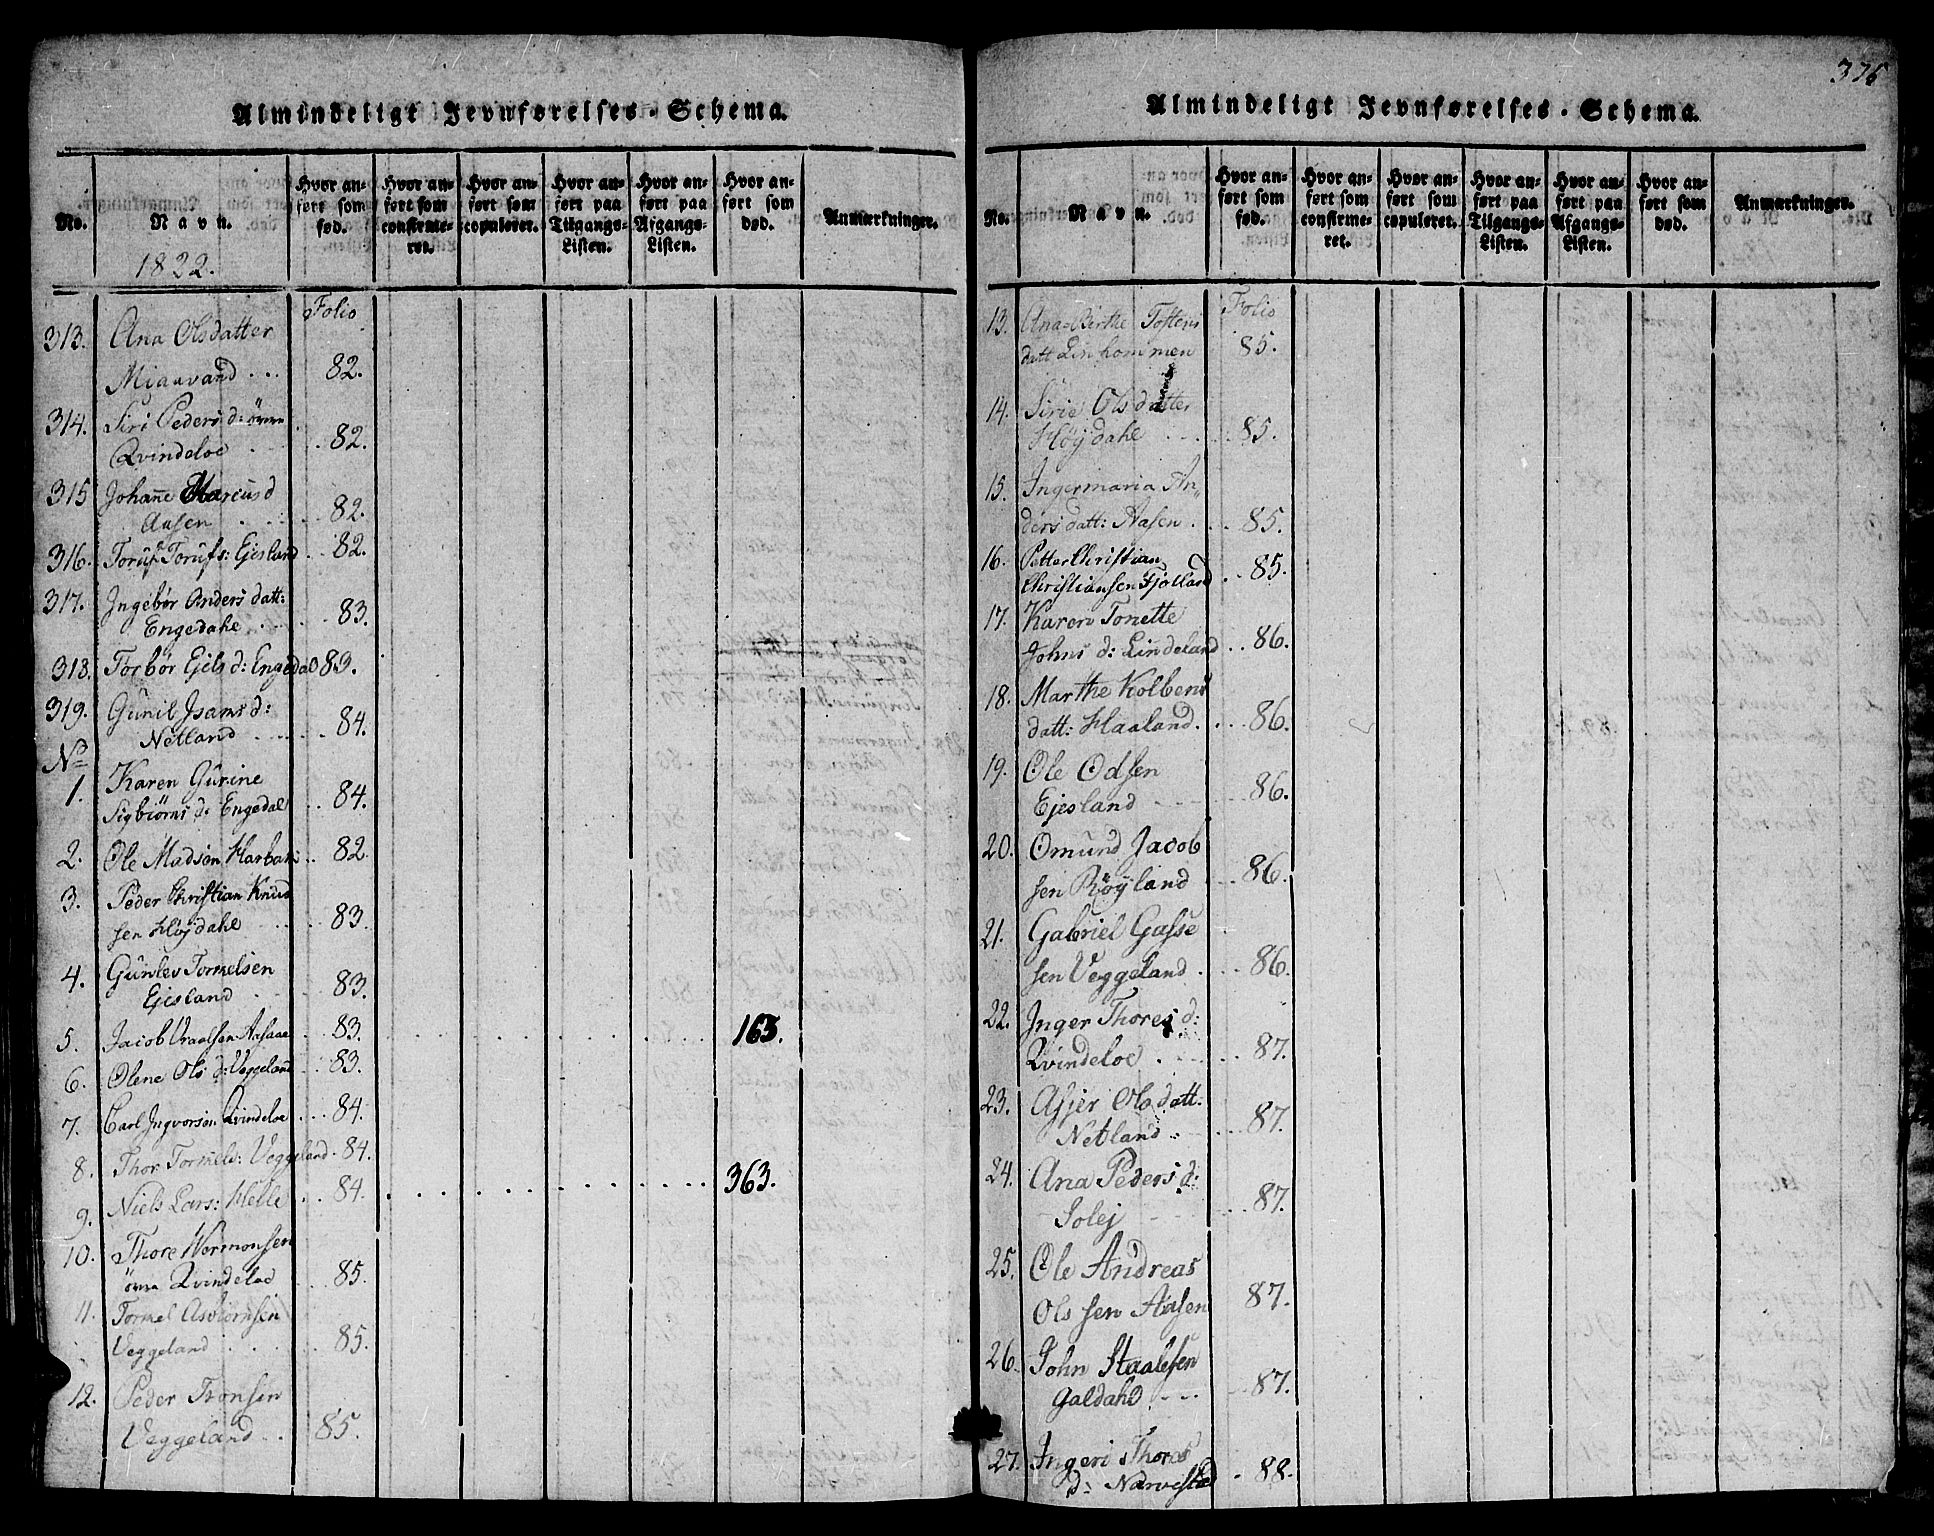 Almindeligt Jevnførelses-Schema.
No.
Navn.
Hvor anført som fød.
Hvor anført som confirmeret.
Hvor anført som copuleret.
Hvor anført paa Tilgangs-Listen.
Hvor anført paa Afgangs-Listen.
Hvor anført som død.
Anmærkninger.
1822.
Folio
313. Ana Olsdatter
Miaavand ... 82.
314. Siri Peders d: övre
Qvindeloe . . . 82.
315 Johanne Marcus d
Aasen . . . 82.
316. Toruf Torufs: Ejesland . . 82.
317. Ingebör Anders datt:
Engedahe . . . 83.
318. Torbör Ejels d: Engedal 83.
319. Gunil Isams d:
Netland . . . 84.
No
1. Karen Gurine
Sigbiörns d: Engedal . . 84.
2. Ole Madsen . . 82
3. Peder Christian Knud
sen Höjdahe . . . 83.
4. Gunlev Tormelsen
Ejesland . . . 83.
5. Jacob Aasaae . . 83. . . . 163.
6. Olene Ols d: Veggeland . . 83.
7. Carl Ingvorsen Qvindeloe . . . 84.
8. Thor Tormels: Veggeland . 84.
9. Niels Lars: Helle . . 84. . . . 363.
10. Thore Wormonsen
övre Qvindeloe . . . 85.
11. Tormel Asbiörnsen
Veggeland . . . 85.
12. Peder Tronsen
Veggeland . . 85.
376
Almindeligt Jevnførelses-Schema.
No.
Navn.
Hvor anført som fød.
Hvor anført som confirmeret.
Hvor anført som copuleret.
Hvor anført paa Tilgangs-Listen.
Hvor anført paa Afgangs-Listen.
Hvor anført som død.
Anmærkninger.
Folio
13. Ana Birthe Tostens
datt Linkommen 85.
14. Sirie Olsdatter
Höjdahe . . . 85.
15. Ingermaria An,,
ders datt: Aasen . . . 85.
16. Petter Christian
Christiansen Fjotland . . 85.
17. Karen Tonette
Johns d: Lindeland . . 86.
18. Marthe Kolbens
datt: Haaland . . . 86.
19. Ole Odsen
Ejesland . . . 86.
20. Omund Jacob
sen Röyland . . . 86.
21. Gabriel Gasse
sen Veggeland . . . 86.
22. Inger Thores d:
Qvindeloe . . . 87.
23. Asjer Ols datt:
Netland . . . 87.
24. Ana Peders d:
Solej . . . 87.
25. Ole Andreas
Olssen Aasen 87.
26. John Staalesen
Galdahl . . . 87.
27. Ingeri Thores
d: Narvestad . 88.